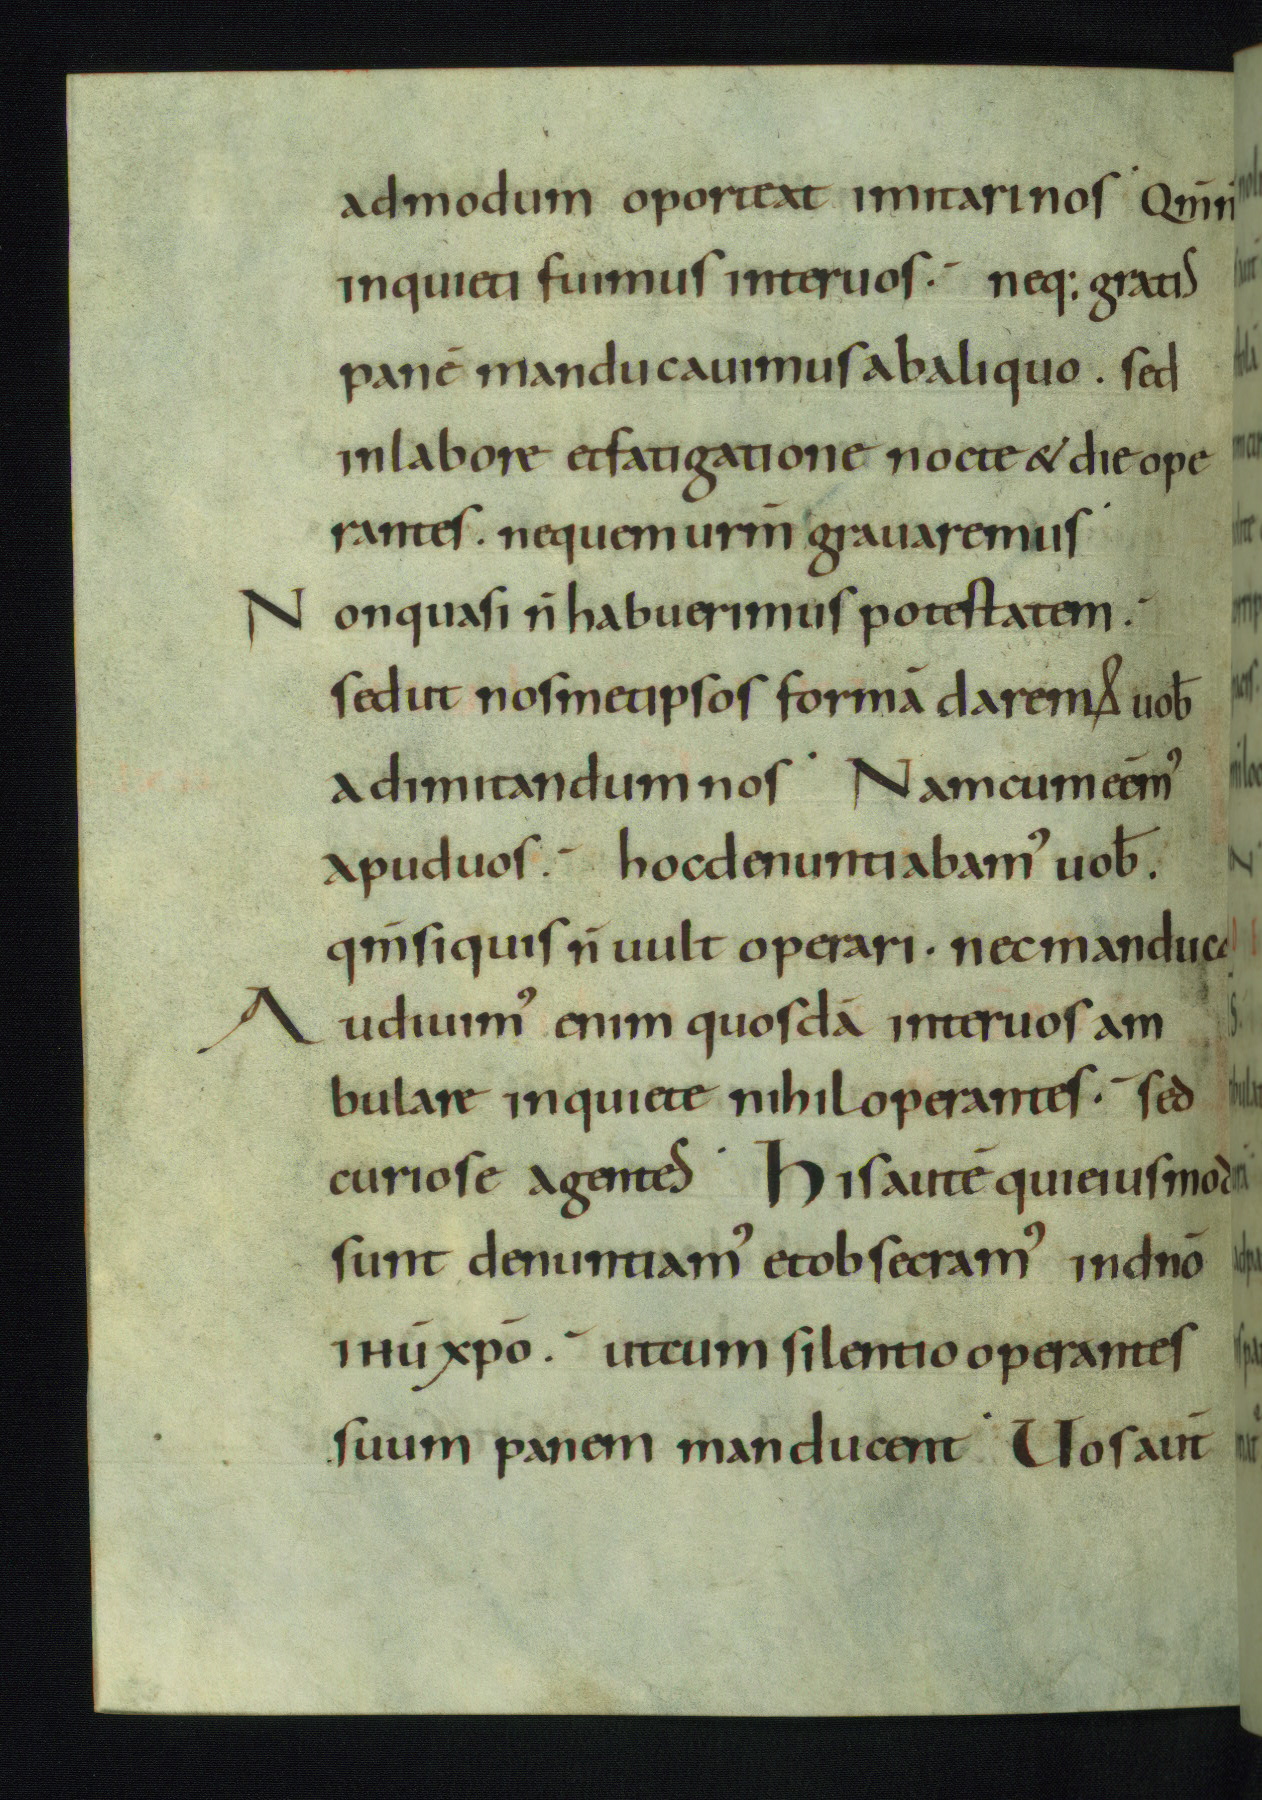 admodum oporteat imitari nos· Qm̄ ñ
inquieti fuimus inter uos.· neq; gratis
panē manducauimus ab aliquo . sed
in labore et fatigatione nocte & die ope
rantes . ne quem urm̄ grauaremus·
Non quasi ñ habuerimus potestatem.·
sed ut nosmetipsos formā daremus uob̄
ad imitandum nos· Nam cum eēm᾿
apud uos.· hoc denuntiabam᾿ uob̄.
qm̄ si quis ñ uult operari . nec manduc&
Audiuim᾿ enim quosdā inter uos am
bulare inquiete nihil operantes.· sed
curiose agentes· His autē qui eiusmod
sunt denuntiam᾿ et obsecram᾿ in dn̄o
ihū xp̄o.· ut cum silentio operantes
suum panem manducent· Uos aut̄